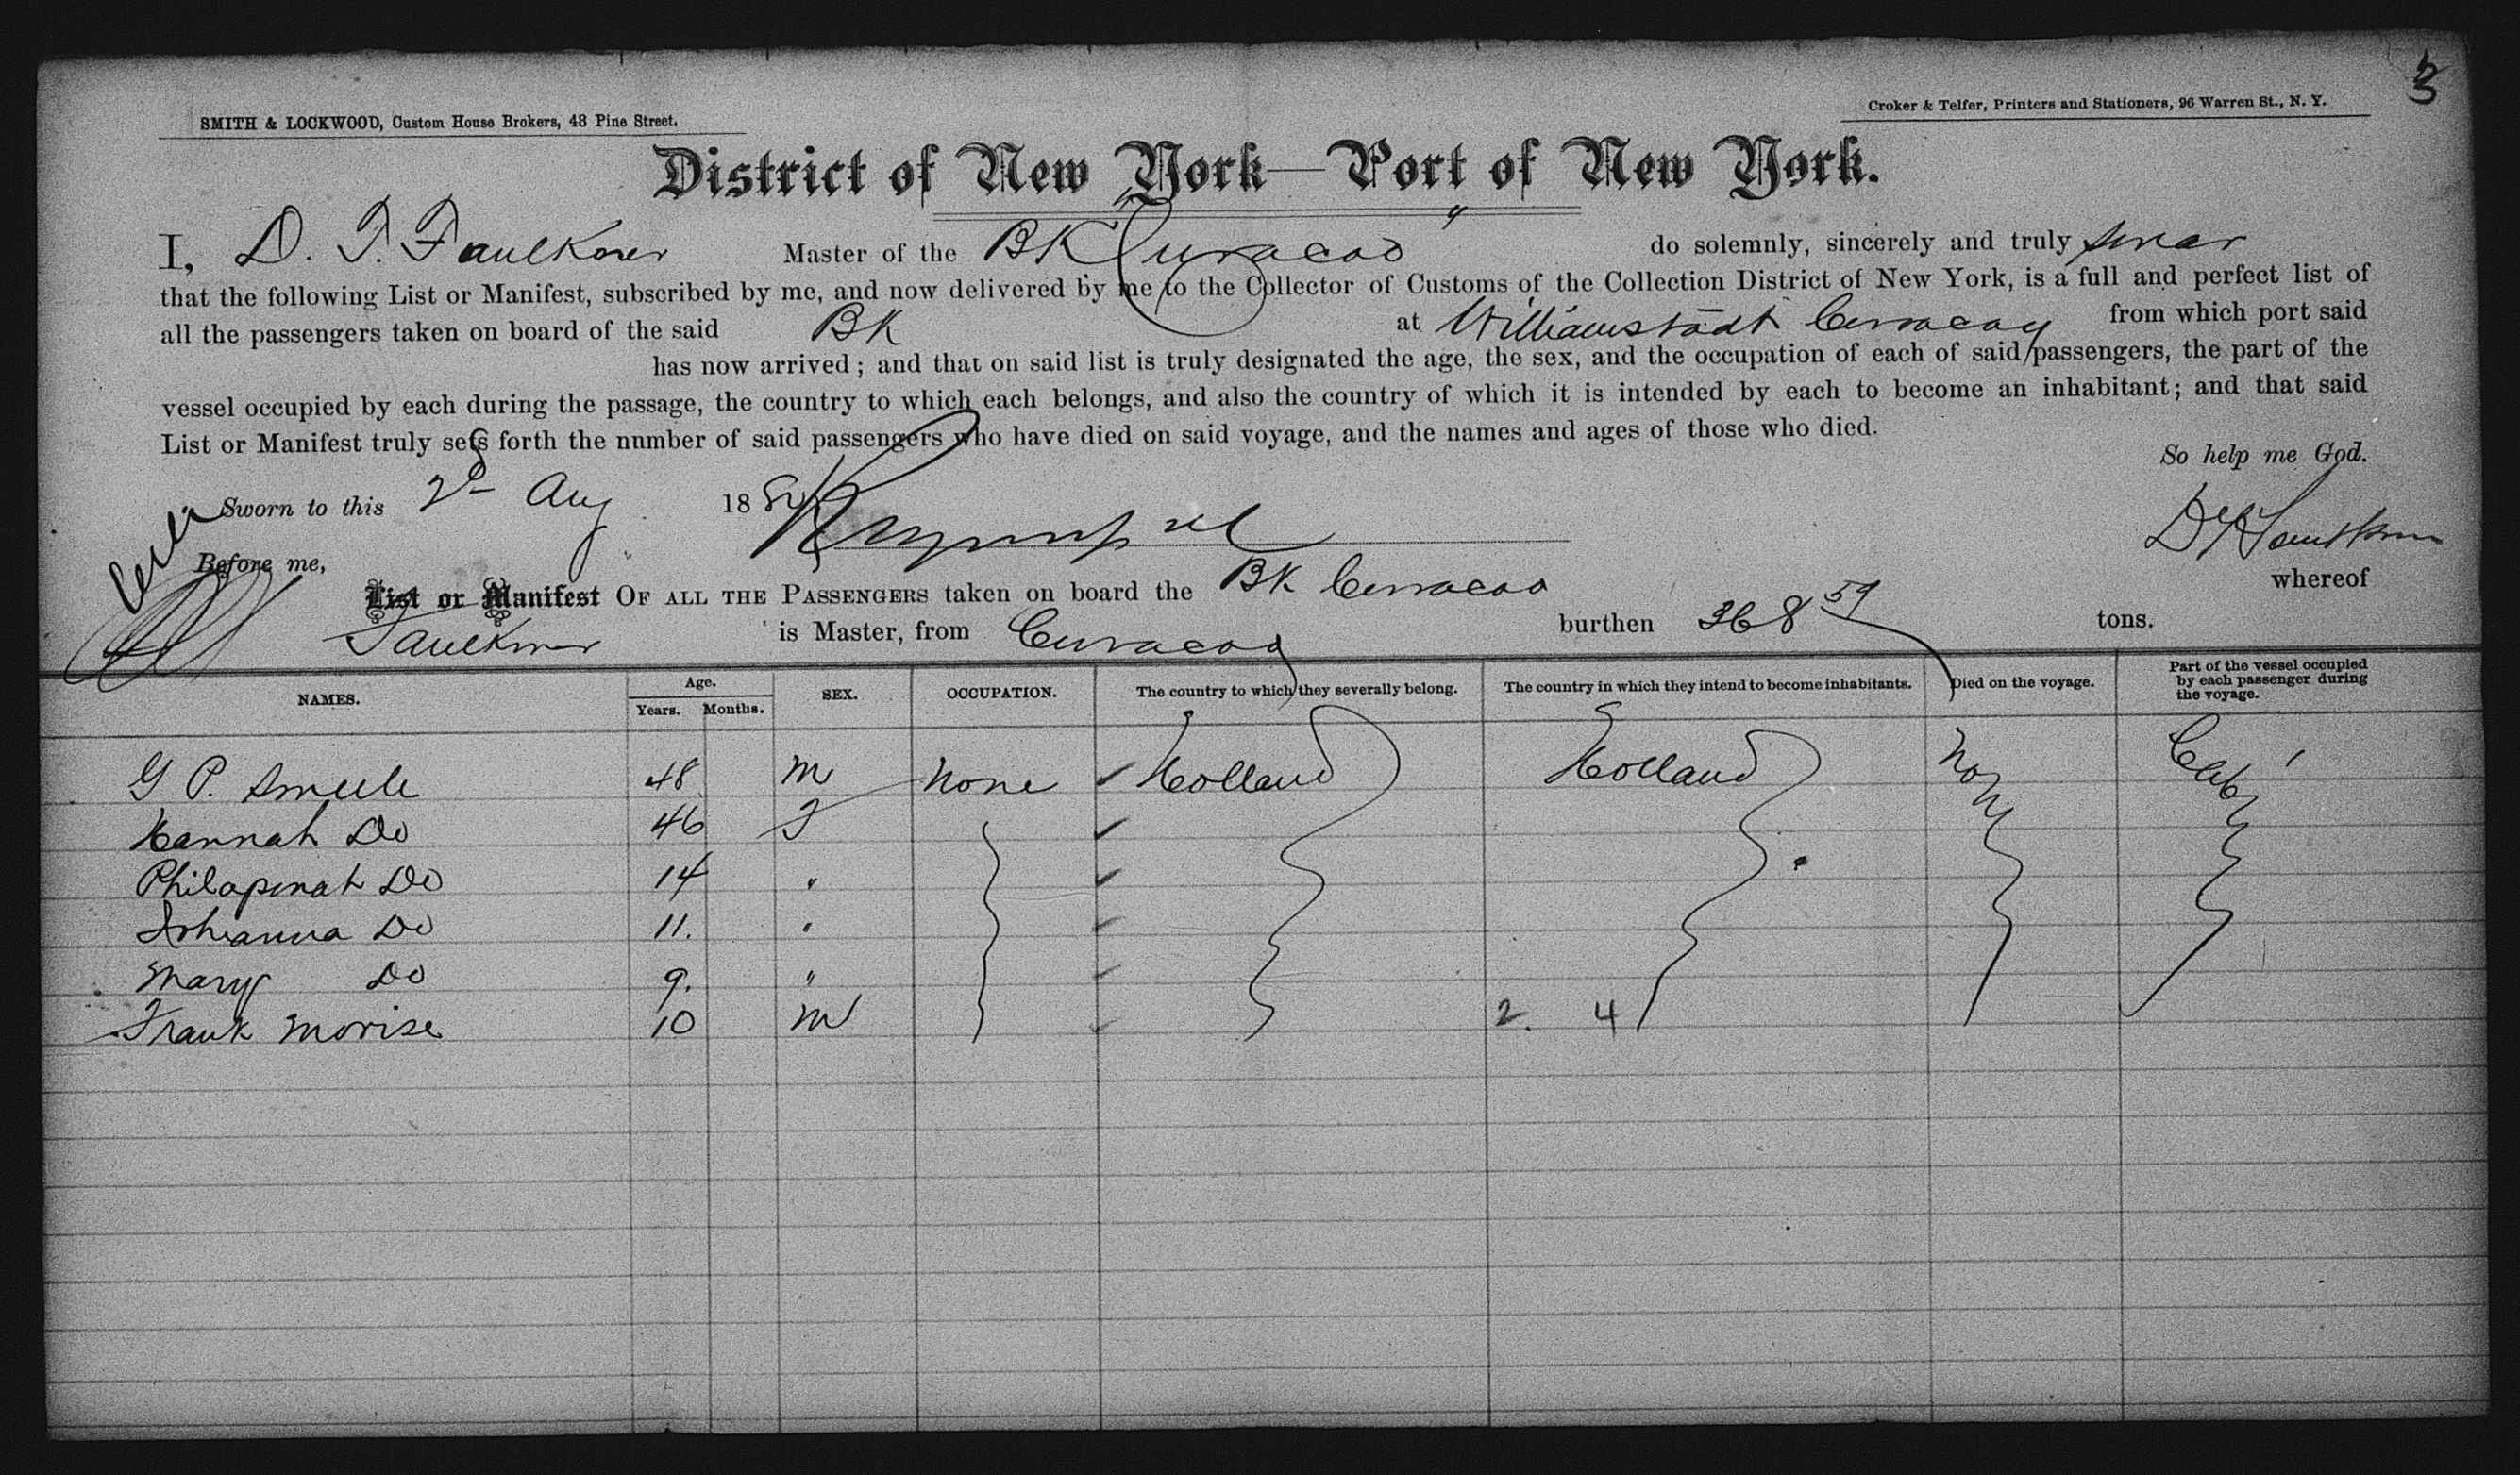 3
SMITH & LOCKWOOD, Custom House Brokers, 43 Pine Street.
Croker & Telfer, Printers and Stationers, 96 Warren St., N. Y.
District of New York—Port of New York.
I, D. T. Faulkner Master of the BK "Curacao" do solemnly, sincerely and truly swear
that the following List or Manifest, subscribed by me, and now delivered by me to the Collector of Customs of the Collection District of New York, is a full and perfect list of
all the passengers taken on board of the said BK at Williamstadt Curracao from which port said
has now arrived; and that on said list is truly designated the age, the sex, and the occupation of each of said passengers, the part of the
vessel occupied by each during the passage, the country to which each belongs, and also the country of which it is intended by each to become an inhabitant; and that said
List or Manifest truly sets forth the number of said passengers who have died on said voyage, and the names and ages of those who died.
So help me God.
Sworn to this 2d Aug 188
Before me,
List or Manifest OF ALL THE PASSENGERS taken on board the BK Curracao whereof
Faulkner is Master, from Curracao burthen 368 59 tons.
NAMES. Age. Years. Months. SEX. OCCUPATION. The country to which they severally belong. The country in which they intend to become inhabitants. Died on the voyage. Part of the vessel occupied by each passenger during the voyage.
G P. Smeele 48 M None Holland Holland None Cabin
Hannah Do 46 F
Philapinah Do 14 "
Johanna Do 11. "
Mary Do 9. "
Frank Morise 10 M 2. 4